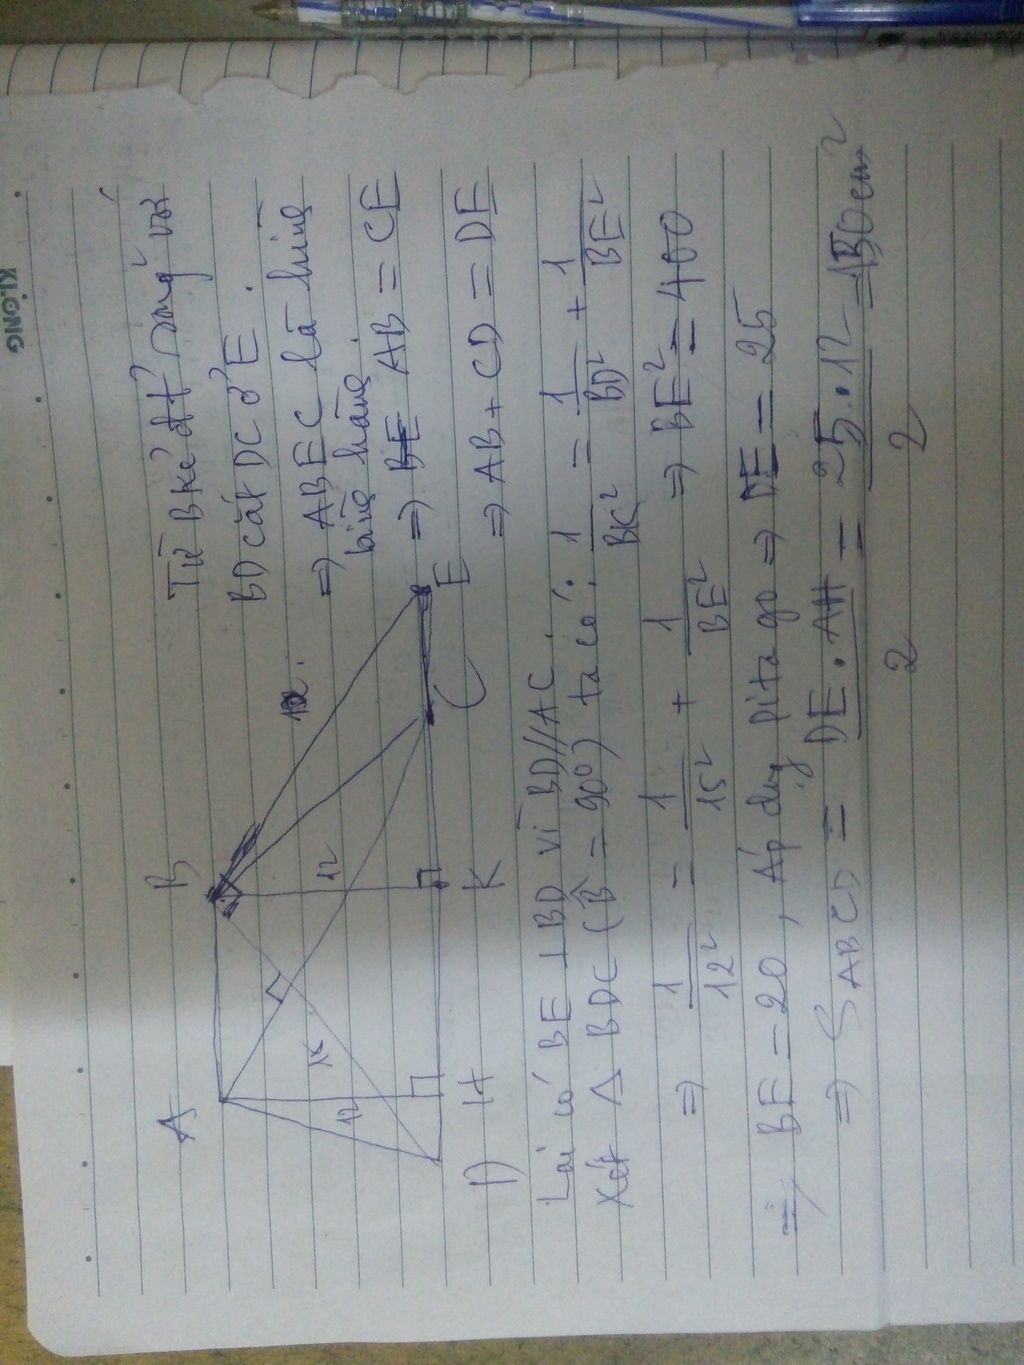 KLONG
Từ B kẻ đt² song² với
BD cắt DC ở E.
⇒ ABEC là hình
bình hành.
⇒ AB = CE
⇒ AB + CD = DE
A
B
12
15
12
D
H
K
C
E
Lại có BE ⊥ BD vì BD//AC.
Xét Δ BDC (B̂ = 90⁰) ta có: 1/BK² = 1/BD² + 1/BE²
⇒ 1/12² = 1/15² + 1/BE² ⇒ BE² = 400
⇒ BE = 20, Áp dụng pitago ⇒ DE = 25
⇒ S ABCD = DE.AH/2 = 25.12/2 = 150cm²